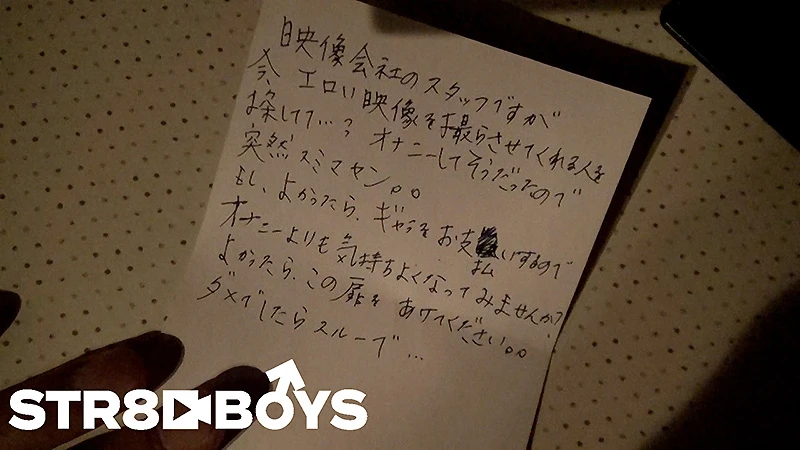 映像会社のスタッフですが
今、エロい映像を撮らさせてくれる人を
探してて…? オナニーしてそうだったので
突然スミマセン。。
もし、よかったら、ギャラをお支払いするので
オナニーよりも気持ちよくなってみませんか?
よかったら、この扉をあけてください。。
ダメでしたらスルーで…
STR8BOYS